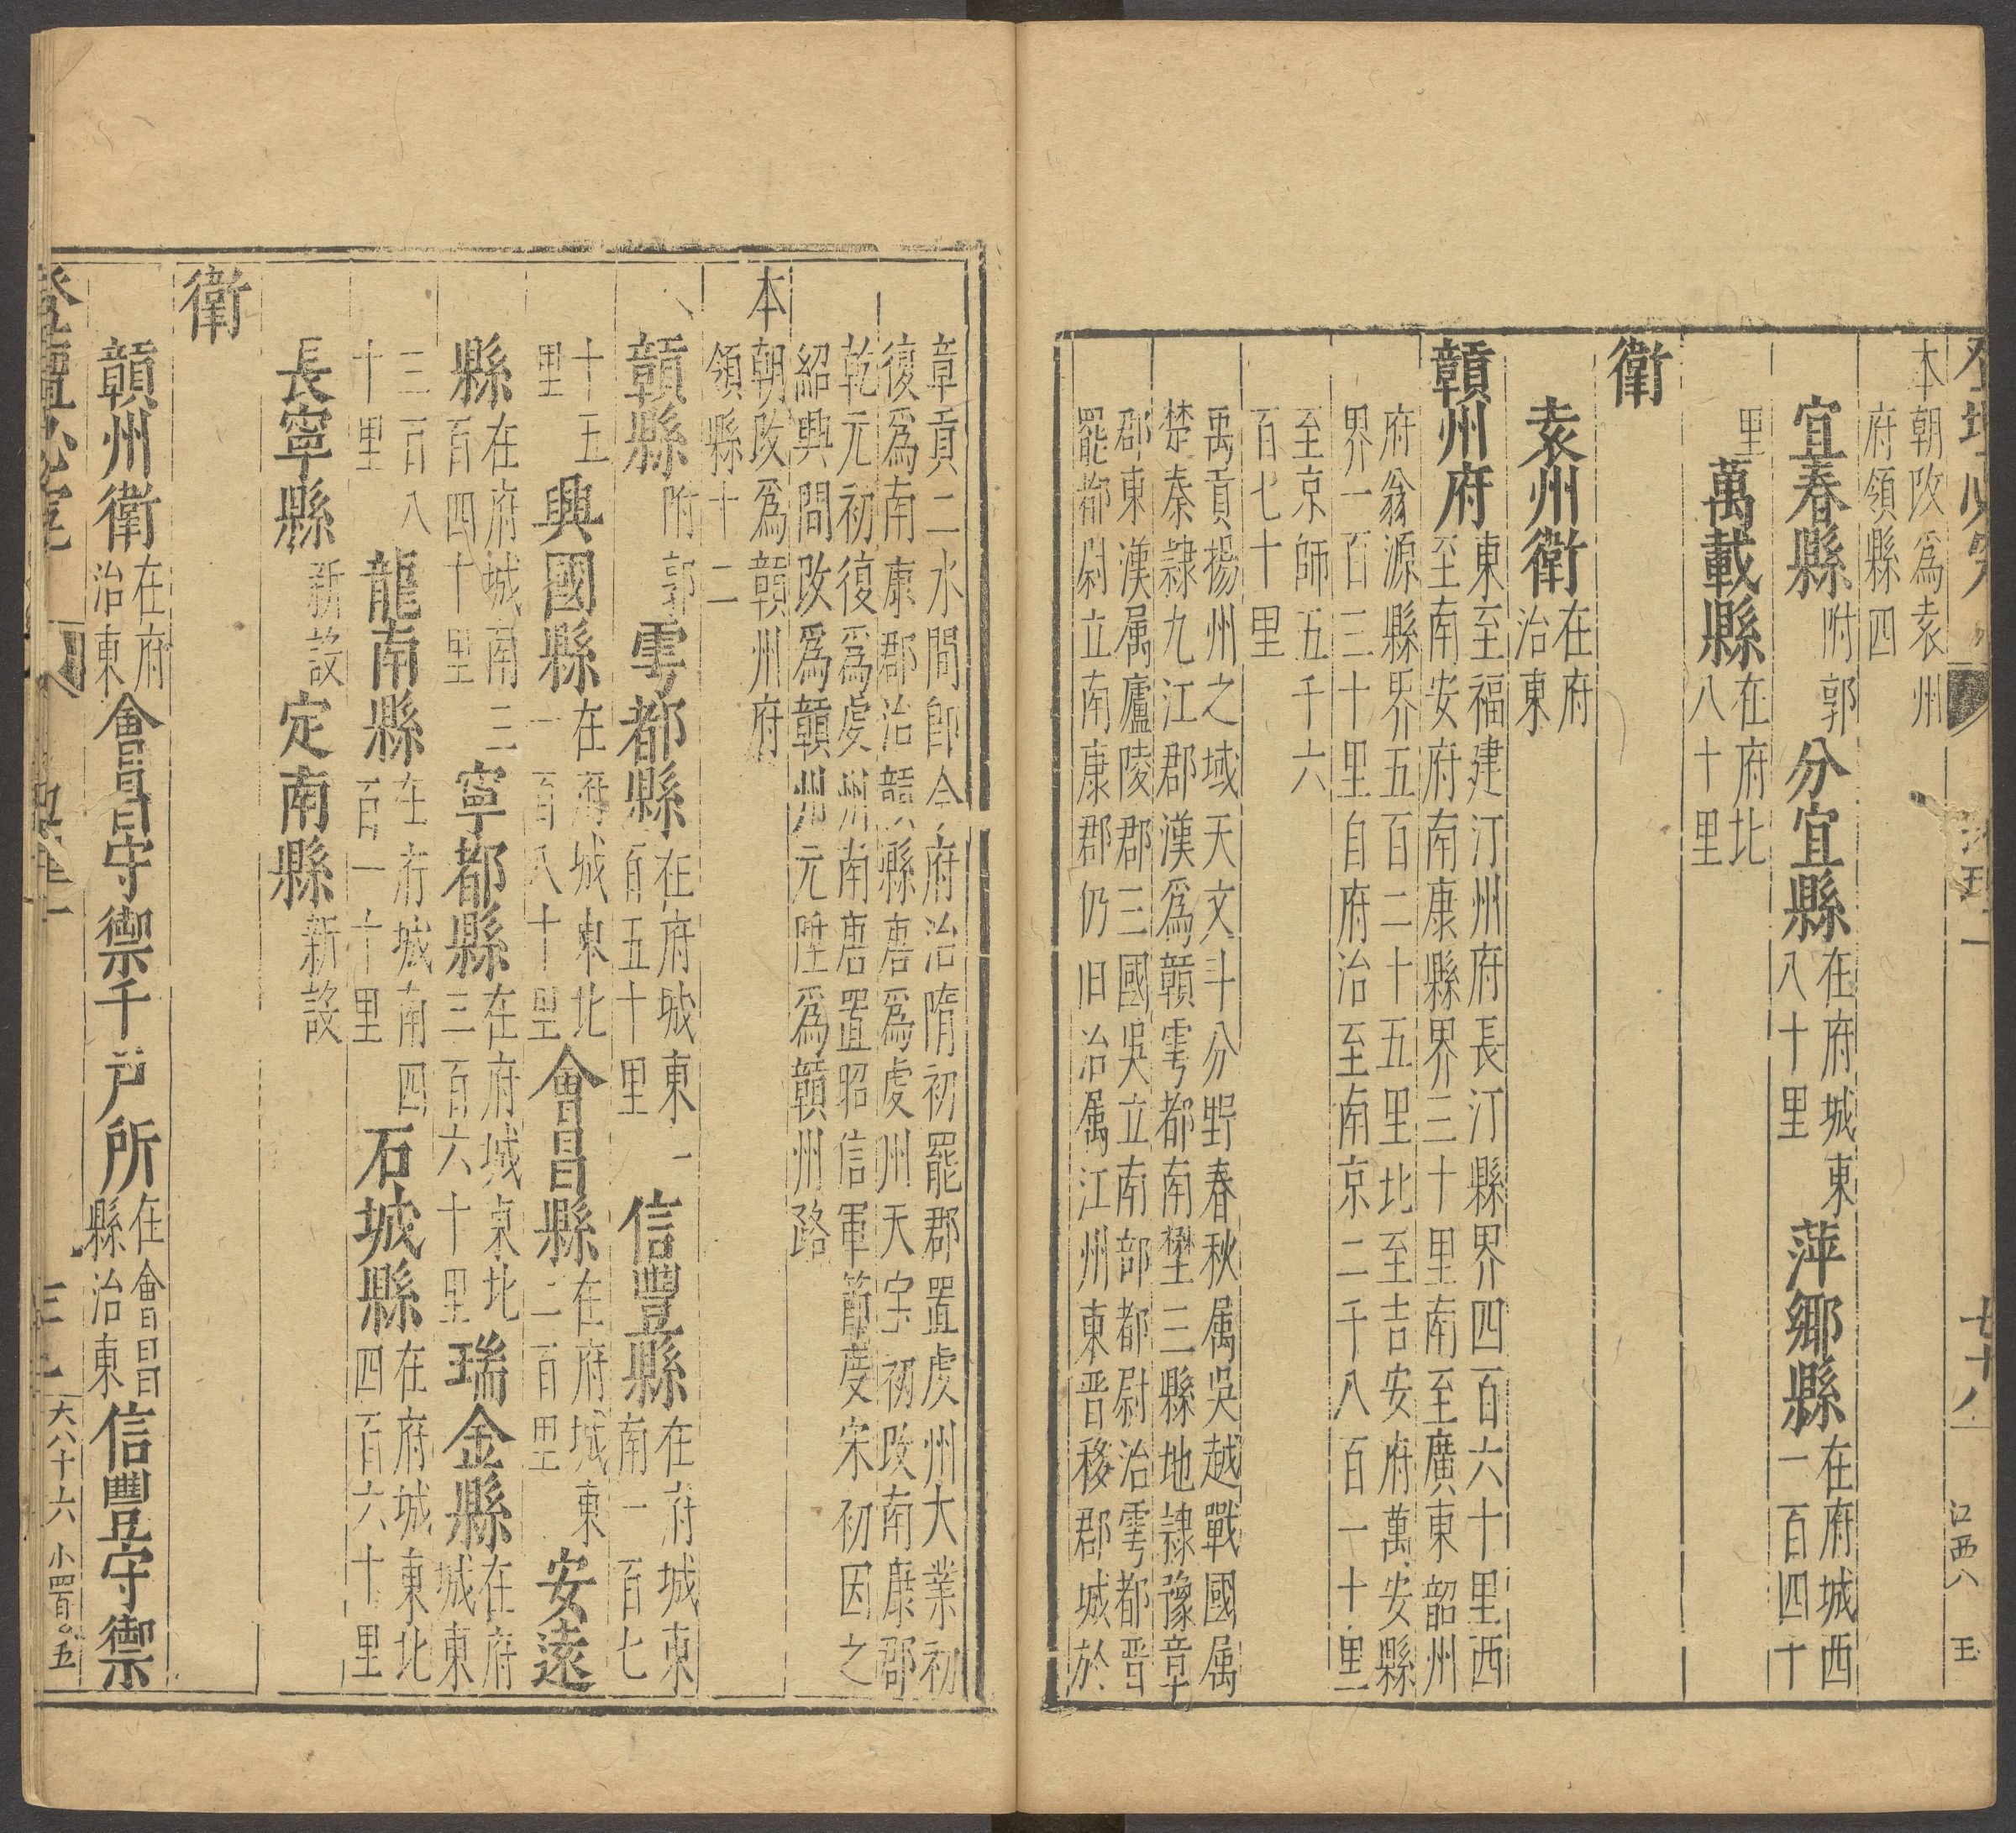 本朝改為袁州
府領縣四
宜春縣附郭分宜縣在府城東八十里萍鄉縣在府城西一百四十
里萬載縣在府北八十里
衛
袁州衛在府治東
贛州府東至福建汀州府長汀縣界四百六十里西
至南安府南康縣界三十里南至廣東韶州
府翁源縣界五百二十五里北至吉安府萬安縣
界一百三十里自府治至南京二千八百一十里
至京師五千六
百七十里
禹貢揚州之域天文斗分野春秋属吳越戰國属
楚秦隷九江郡漢爲贛雩都南壄三縣地隷豫章
郡東漢属廬陵郡三國吳立南部都尉治雩都晋
罷都尉立南康郡仍旧治属江州東晋移郡城於
江西八 玉
章貢二水間卽今府治隋初罷郡置虔州大業初
復爲南康郡治贛縣唐爲虔州天宝初改南康郡
乾元初復爲虔州南唐置昭信軍節度宋初因之
紹興間改爲贛州元陞爲贛州路
本朝改爲贛州府
領縣十二
贛縣附郭雩都縣在府城東一百五十里信豐縣在府城東南一百七
十五里興國縣在府城東北一百八十里會昌縣在府城東二百里安遠
縣在府城南三百四十里寧都縣在府城東北三百六十里瑞金縣在府城東
三百八十里龍南縣在府城南四百一十里石城縣在府城東北四百六十里
長寧縣新設定南縣新設
衛
贛州衛在府治東會昌守禦千戸所在會昌縣治東信豐守禦
大八十六 小四百〇五